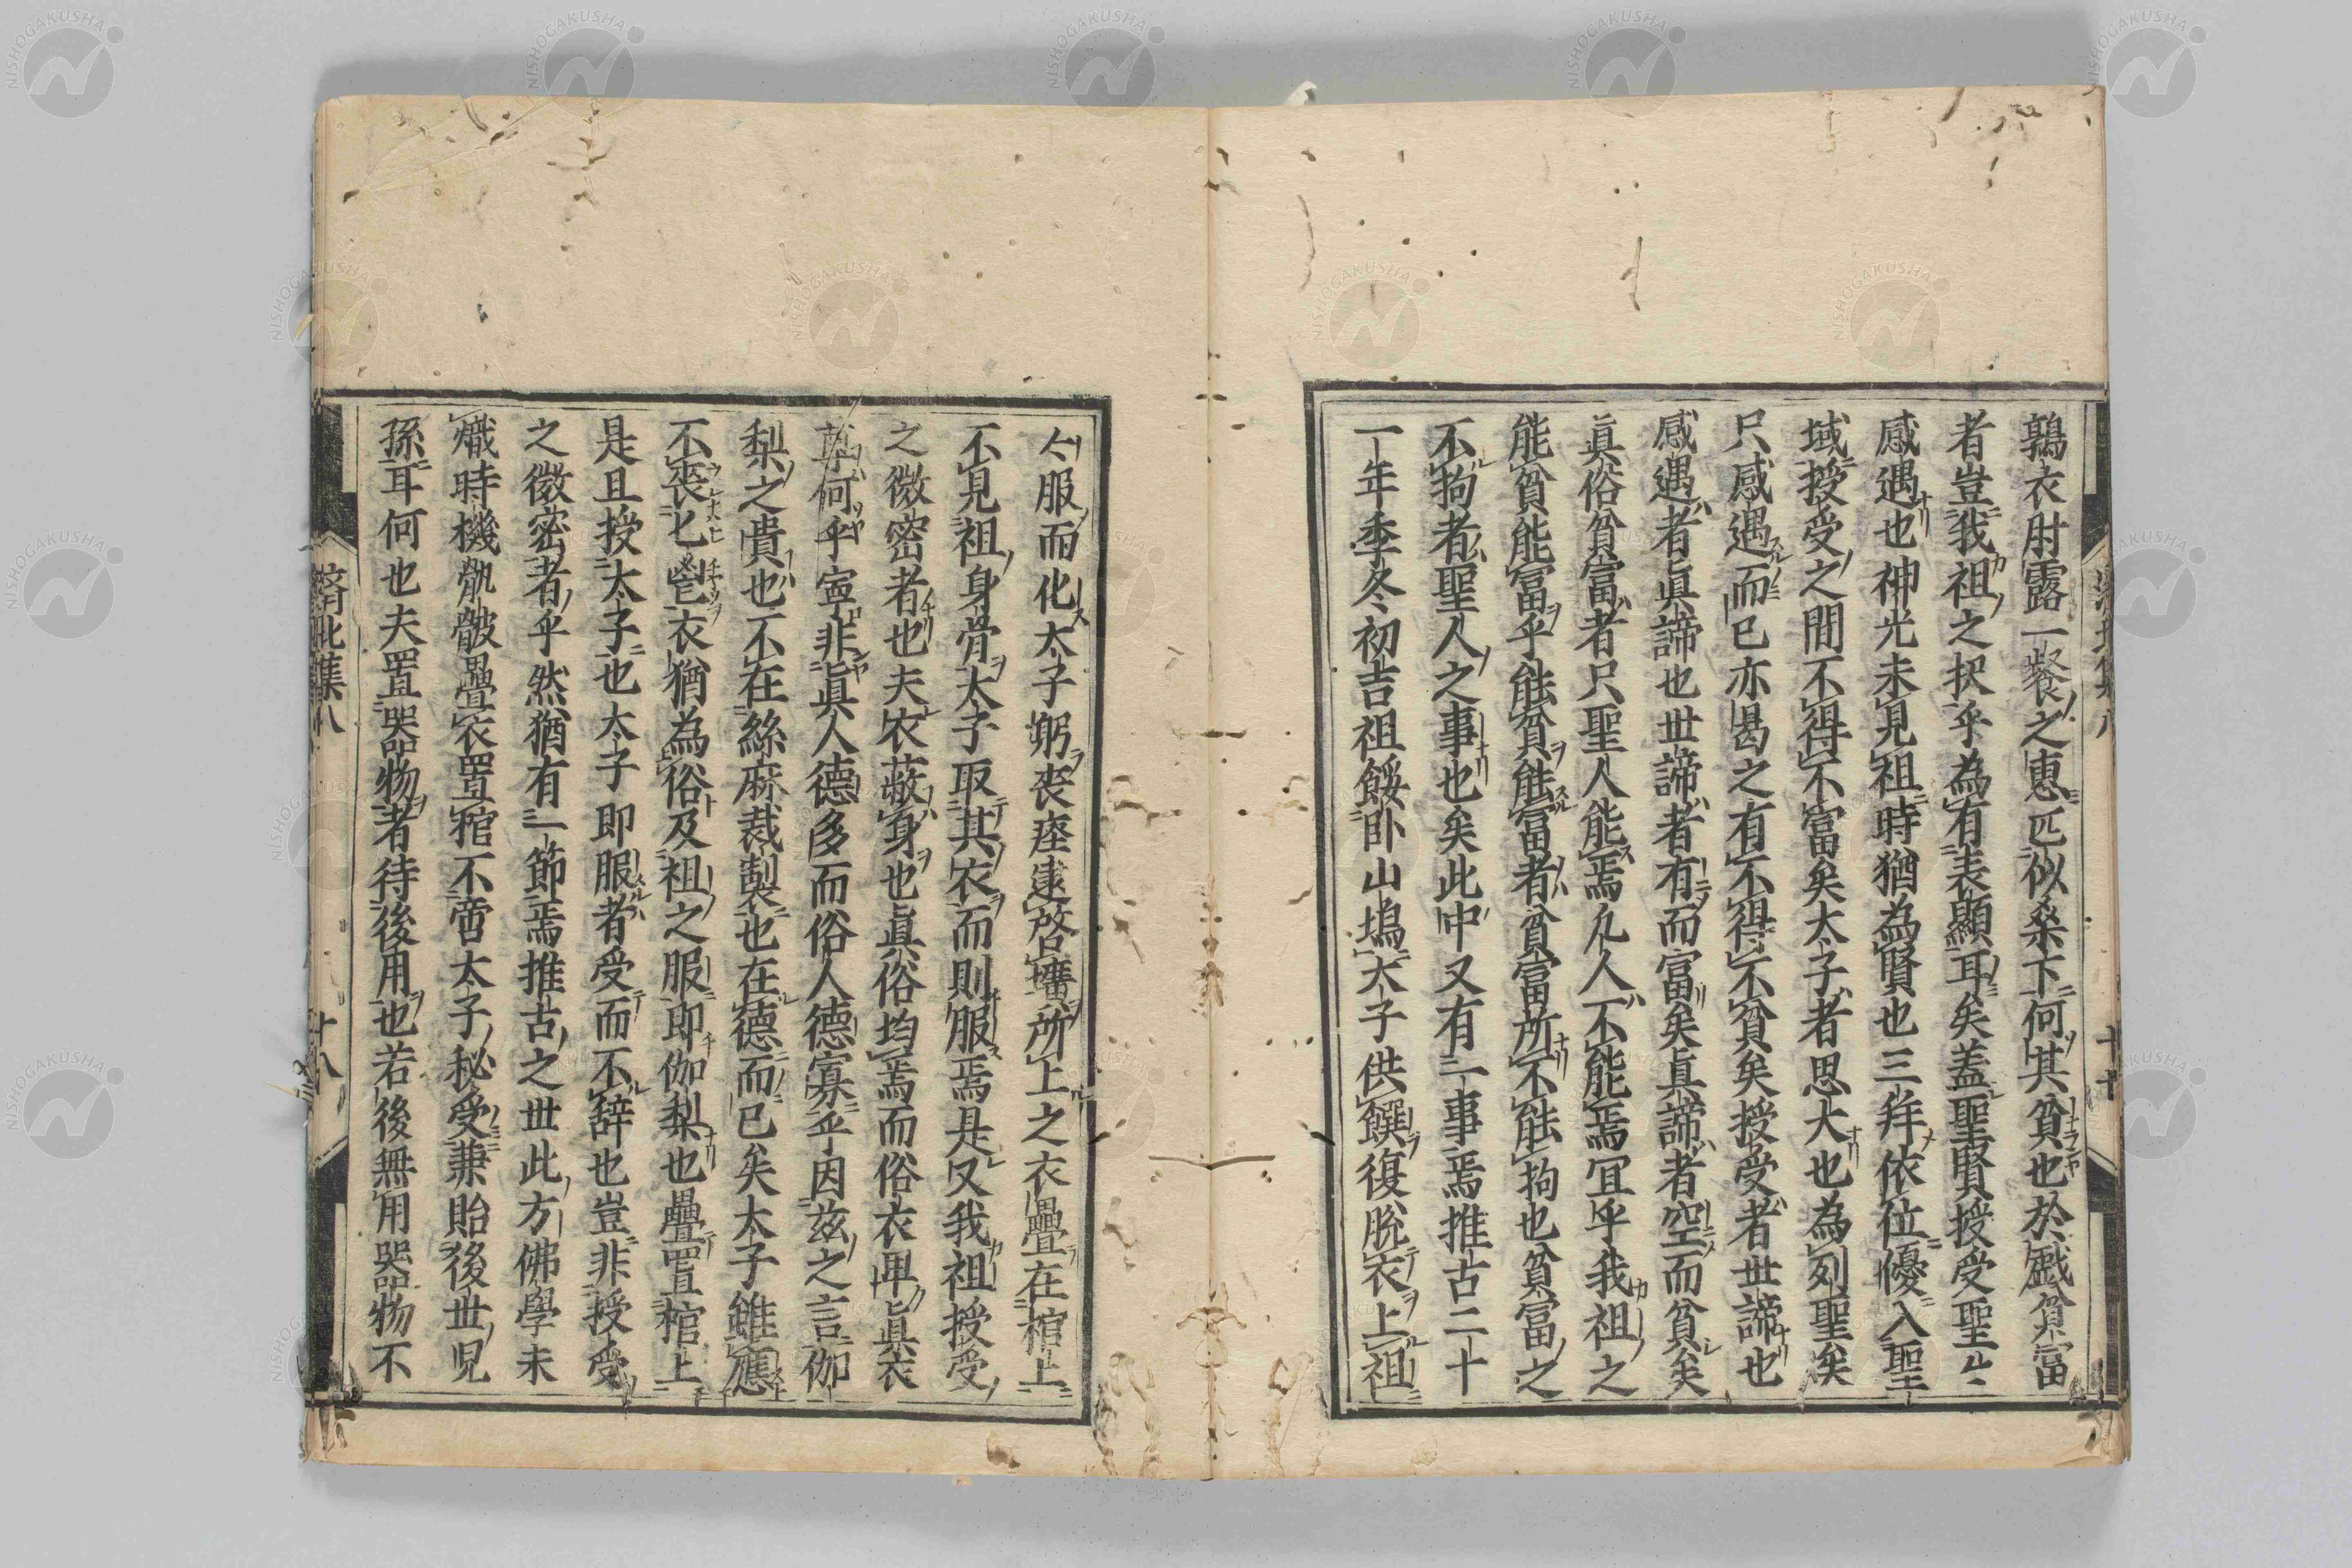 鶉衣肘露一餐之惠匹似桑下何其貧也於戲貧富
者豈我祖之択乎為有表顯耳矣蓋聖賢授受聖〻
感遇也神光未見祖時猶為賢也三拜依位優入聖
域授受之間不得不富矣太子者思大也為列聖矣
只感遇而已亦曷之有不得不貧矣授受者世諦也
感遇者眞諦也世諦者有而富矣眞諦者空而貧矣
眞俗貧富者只聖人能焉凢人不能焉宜乎我祖之
能貧能富乎能貧能富者貧富所不能拘也貧富之
不拘者聖人之事也矣此中又有二事焉推古二十
一年季冬初吉祖餒卧山塢太子供饌復脫衣上祖
〻服而化太子躬喪瘞逮啓壙所上之衣疊在棺上
不見祖身骨太子取其衣而則服焉是又我祖授受
之微密者也夫衣蔽身也眞俗均焉而俗衣卑眞衣
何乎寧非眞人德多而俗人德寡乎因茲之言伽
梨之貴也不在絲麻裁製也在德而已矣太子雖應
不喪匕鬯衣猶為俗及祖之服即伽梨也疊置棺上
是且授太子也太子即服者受而不辭也豈非授受
之微密者乎然猶有一節焉推古之世此方佛學未
熾時機骩骳疊衣置棺不啻太子秘受兼貽後世児
孫耳何也夫置器物者待後用也若後無用器物不
濟北集八
十八